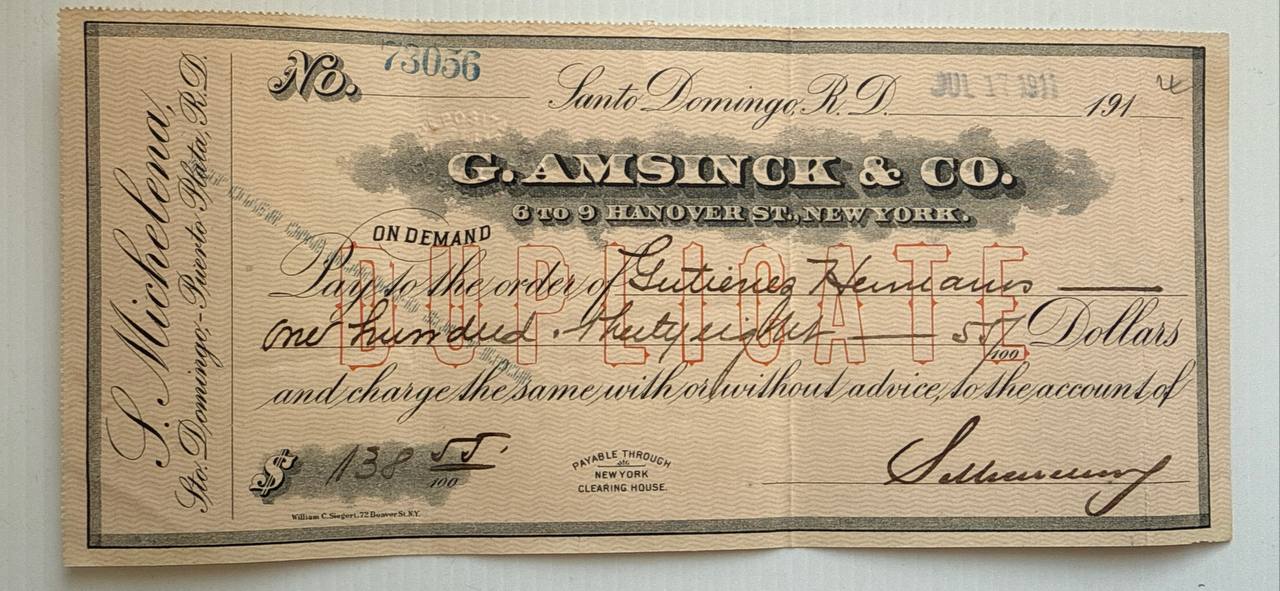 S. Michelena,
Sto. Domingo,-Puerto Plata, R.D.
No. 73056
Santo Domingo, R. D. JUL 17 1911 191
G. AMSINCK & CO.
6 TO 9 HANOVER ST., NEW YORK.
ON DEMAND
DUPLICATE
Pay to the order of Gutierrez Hermanos
one hundred thirty eight 55/100 Dollars
and charge the same with or without advice, to the account of
$ 138 55/100
PAYABLE THROUGH
NEW YORK
CLEARING HOUSE.
William C. Siegert, 72 Beaver St. N.Y.